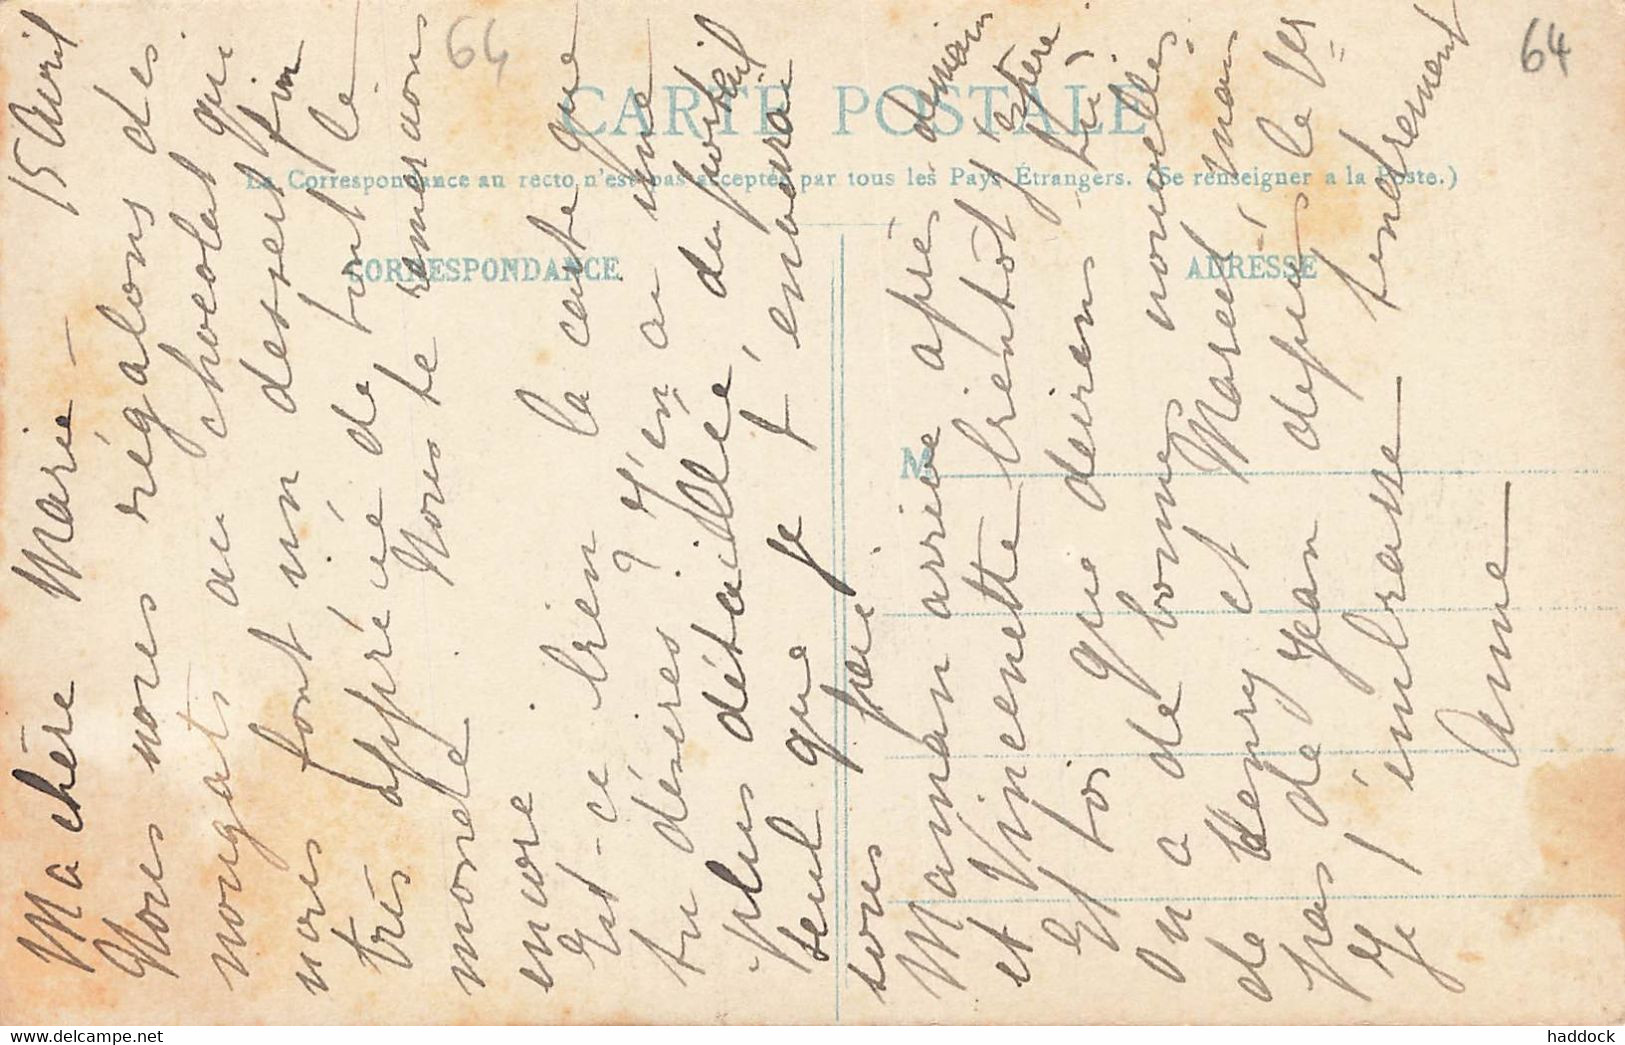 64
64
CARTE POSTALE
La Correspondance au recto n'est pas acceptée par tous les Pays Étrangers. (Se renseigner a la Poste.)
CORRESPONDANCE
ADRESSE
M
15 Avril
Ma chère Marie -
Nous nous régalons des
nougats au chocolat qui
nous font un dessert fin
très apprécié de tout le
monde. Nous te remercions
encore bien
Est-ce la carte que
tu désires? J'en ai une
plus détaillée, du portail
seul que je t'enverrai
sous peu
Maman arrive après demain
et Vincenette bientôt j'espère
Et toi que deviens tu?
On a de bonnes nouvelles
de Henry et Marcel mais
pas de Jean depuis le 1er
Je t'embrasse tendrement
Anne
haddock